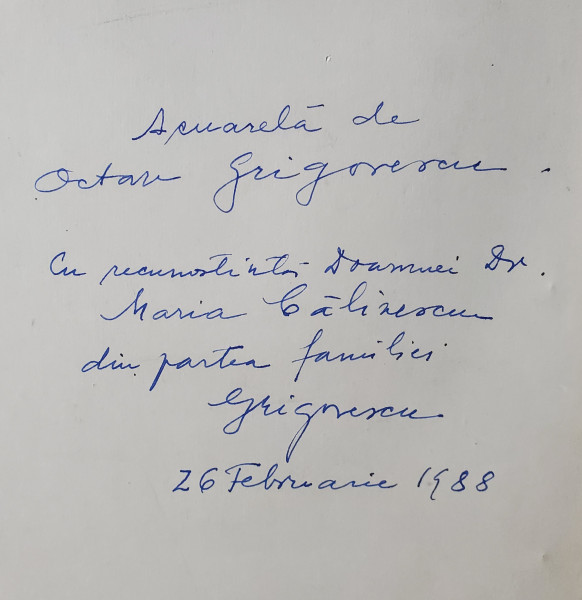 Acuarelă de
Octav Grigorescu.
Cu recunostintă Doamnei Dr.
Maria Călinescu
din partea familiei
Grigorescu
26 Februarie 1988